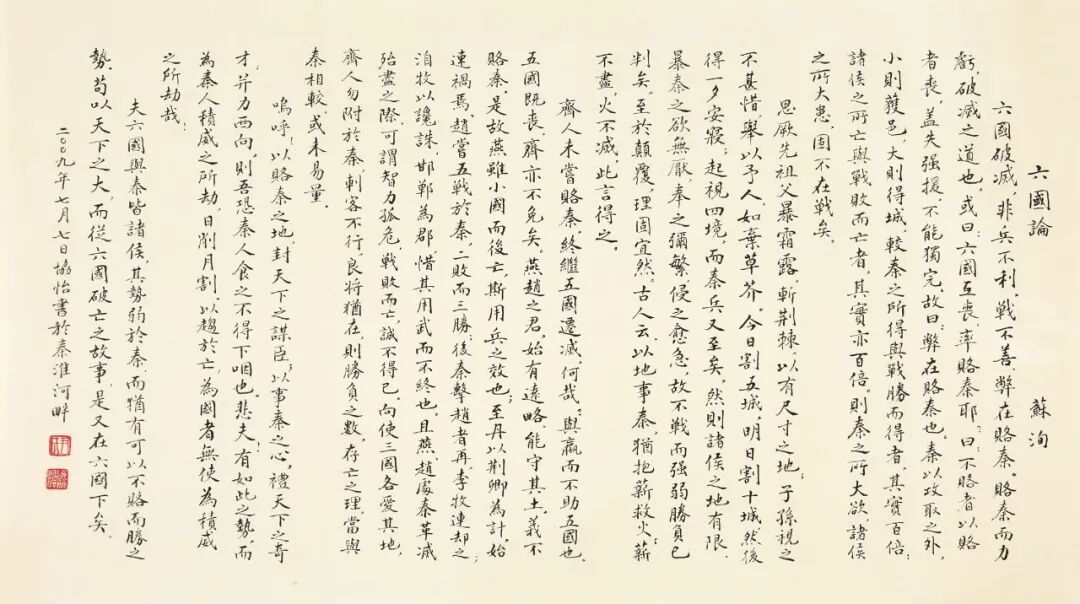 六國論 蘇洵
六國破滅,非兵不利,戰不善,弊在賂秦。賂秦而力
虧,破滅之道也。或曰:六國互喪,率賂秦耶?曰:不賂者以賂
者喪,盖失强援,不能獨完,故曰:弊在賂秦也。秦以攻取之外,
小則獲邑,大則得城,較秦之所得與戰勝而得者,其實百倍;
諸侯之所亡與戰敗而亡者,其實亦百倍。則秦之所大欲,諸侯
之所大患,固不在戰矣。
思厥先祖父暴霜露,斬荆棘,以有尺寸之地。子孫視之
不甚惜,舉以予人,如棄草芥。今日割五城,明日割十城,然後
得一夕安寢;起視四境,而秦兵又至矣。然則諸侯之地有限,
暴秦之欲無厭,奉之彌繁,侵之愈急,故不戰而强弱勝負已
判矣。至於顛覆,理固宜然。古人云:以地事秦,猶抱薪救火,薪
不盡,火不滅,此言得之。
齊人未嘗賂秦,終繼五國遷滅,何哉?與嬴而不助五國也。
五國既喪,齊亦不免矣。燕趙之君,始有遠略,能守其土,義不
賂秦,是故燕雖小國而後亡,斯用兵之效也。至丹以荆卿為計,始
連禍焉。趙嘗五戰於秦,二敗而三勝,後秦擊趙者再,李牧連却之,
洎牧以讒誅,邯鄲為郡,惜其用武而不終也。且燕趙處秦革滅
殆盡之際,可謂智力孤危,戰敗而亡,誠不得已。向使三國各愛其地,
齊人勿附於秦,刺客不行,良將猶在,則勝負之數,存亡之理,當與
秦相較,或未易量。
嗚呼!以賂秦之地封天下之謀臣,以事秦之心禮天下之奇
才,并力西向,則吾恐秦人食之不得下咽也。悲夫!有如此之勢,而
為秦人積威之所劫,日削月割,以趨於亡,為國者無使為積威
之所劫哉!
夫六國與秦皆諸侯,其勢弱於秦,而猶有可以不賂而勝之
勢,苟以天下之大,而從六國破亡之故事,是又在六國下矣。
二〇〇九年七月七日協怡書於秦淮河畔